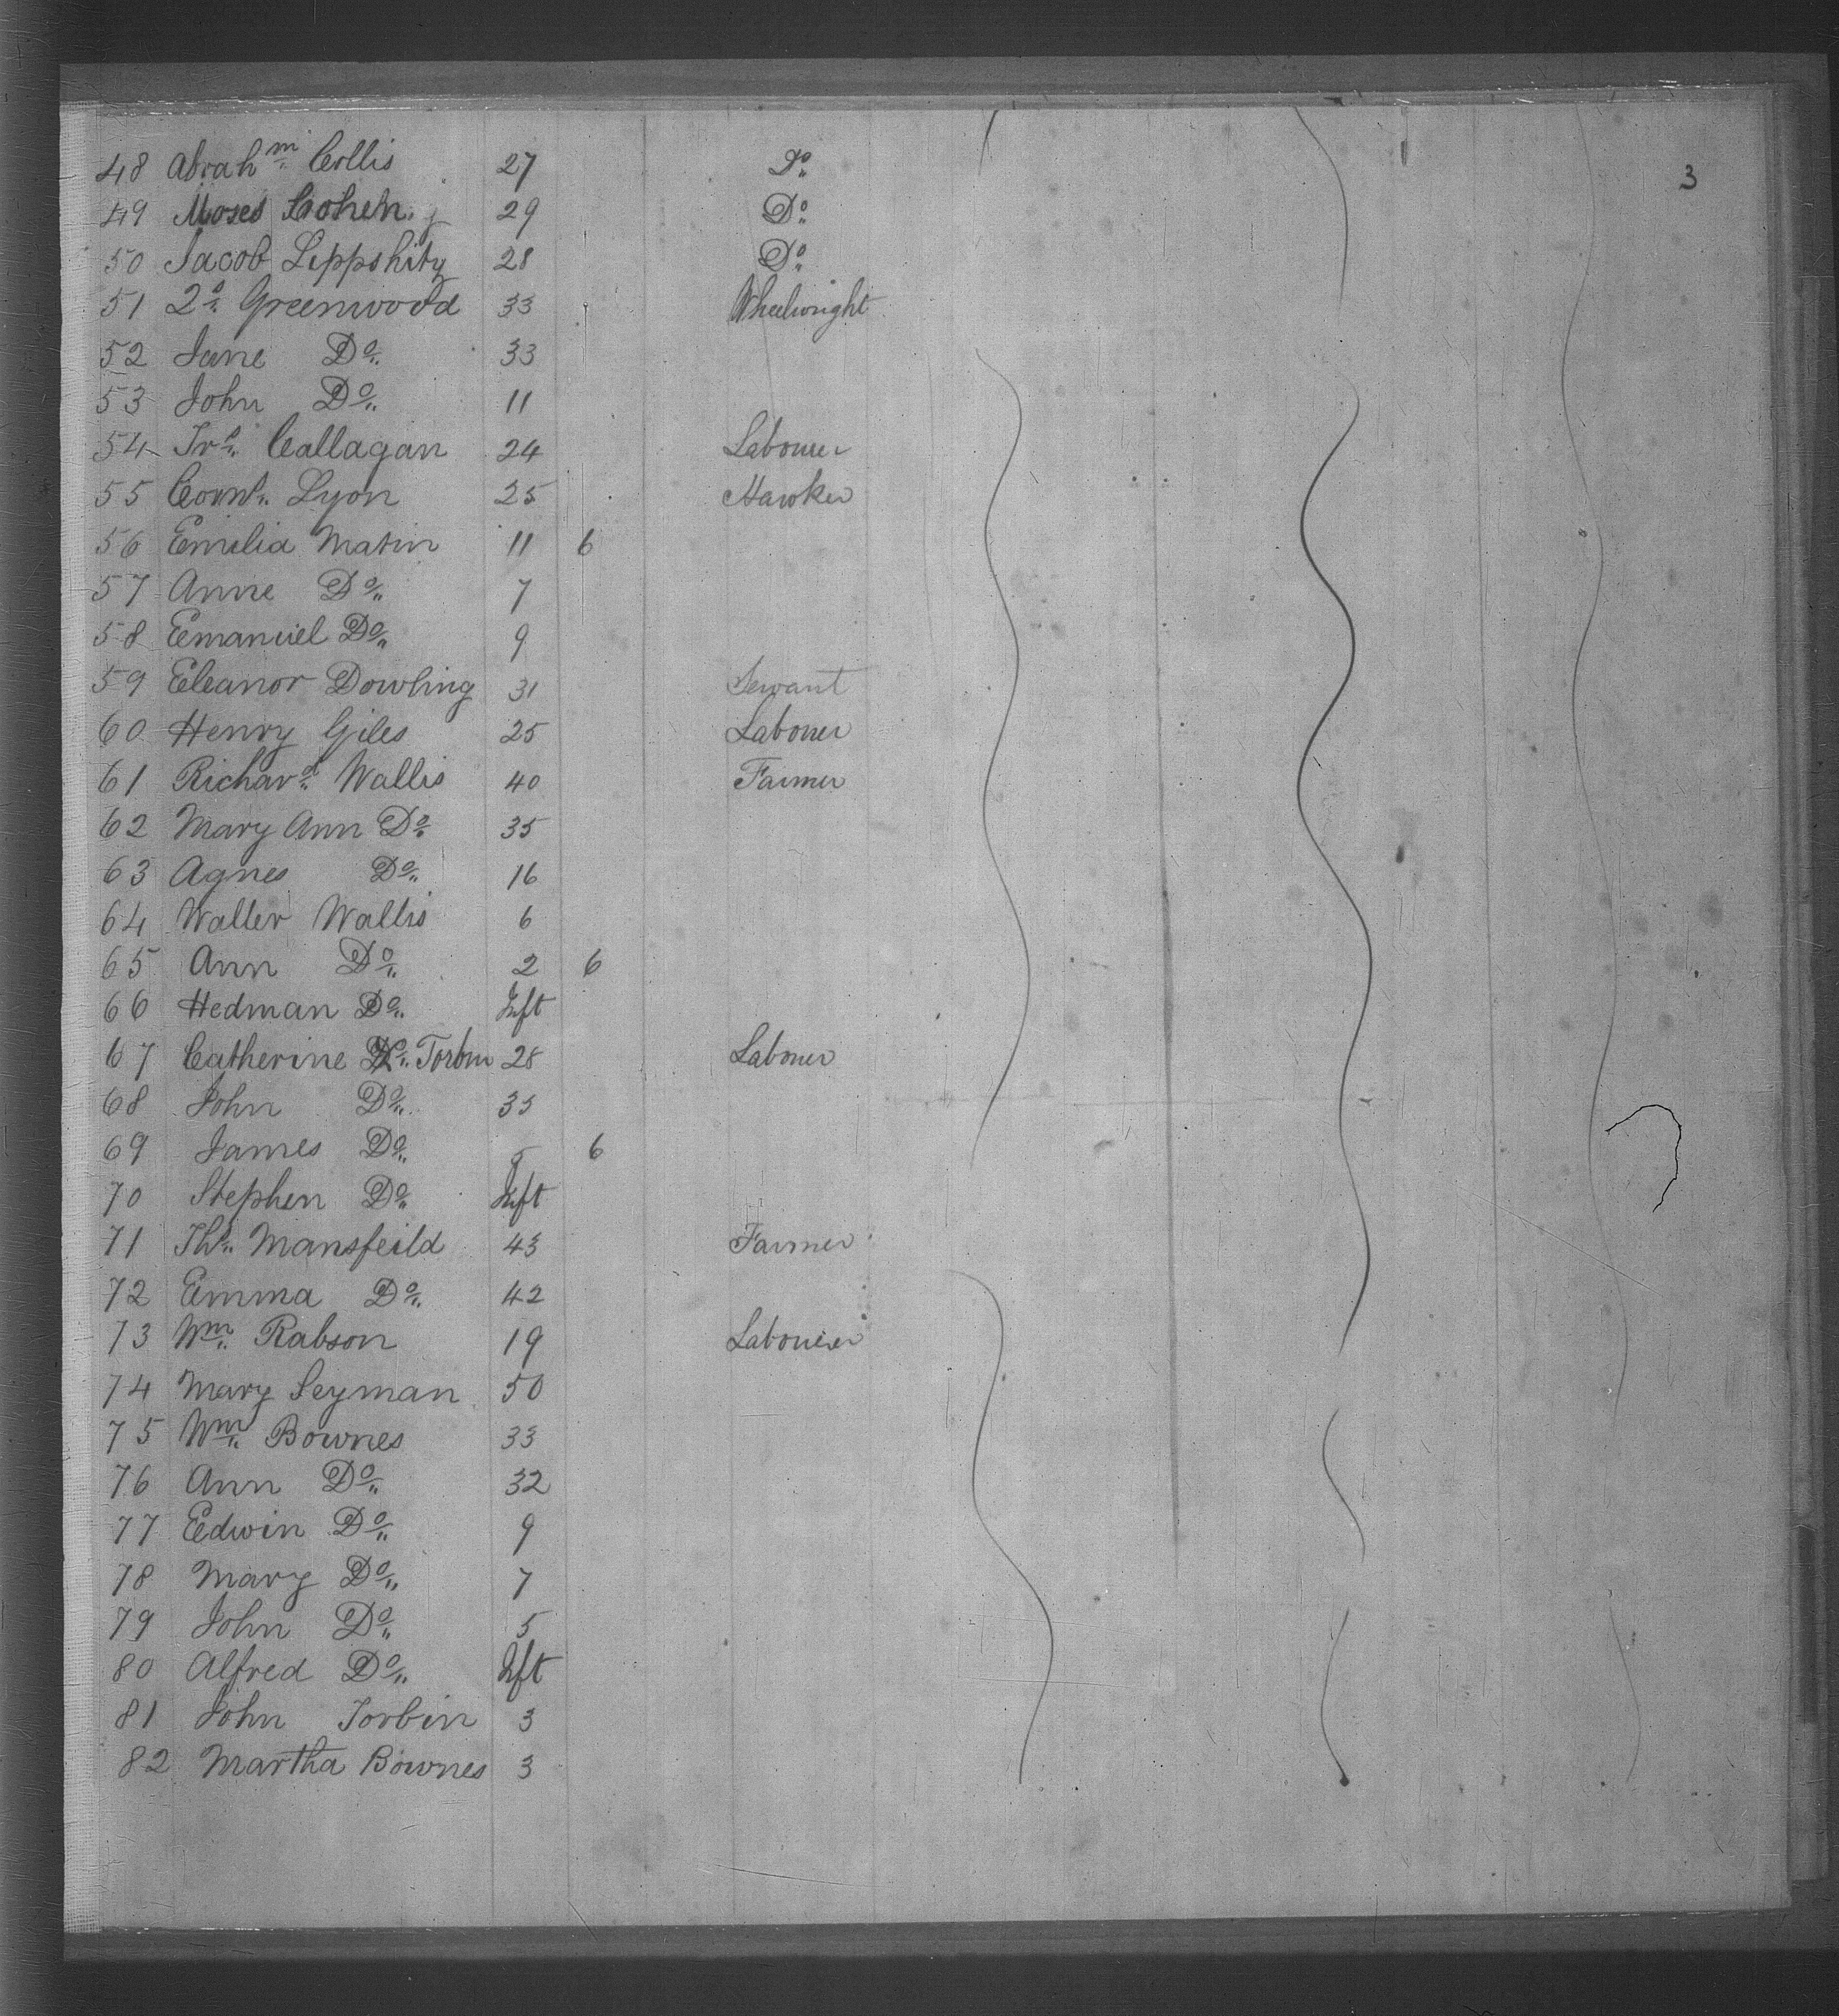 3
48 Abrahm Collis 27 Do
49 Moses Cohen 29 Do
50 Jacob Lippshity 28 Do
51 Greenwood 33 Wheelwright
52 Jane Do 33
53 John Do 11
54 Callagan 24 Labourer
55 Lyon 25 Hawker
56 Emilia Matin 11 6
57 Anne Do 7
58 Emanuel Do 9
59 Eleanor Dowling 31 Servant
60 Henry Giles 25 Labourer
61 Richard Wallis 40 Farmer
62 Mary Ann Do 35
63 Agnes Do 16
64 Walter Wallis 6
65 Ann Do 2 6
66 Hedman Do Inft
67 Catherine Torbin 28 Labourer
68 John Do 35
69 James Do 6
70 Stephen Do Inft
71 Ths Mansfeild 43 Farmer
72 Emma Do 42
73 Wm Rabson 19 Labourer
74 Mary Seyman 50
75 Wm Bownes 33
76 Ann Do 32
77 Edwin Do 9
78 Mary Do 7
79 John Do 5
80 Alfred Do Inft
81 John Torbin 3
82 Martha Bownes 3